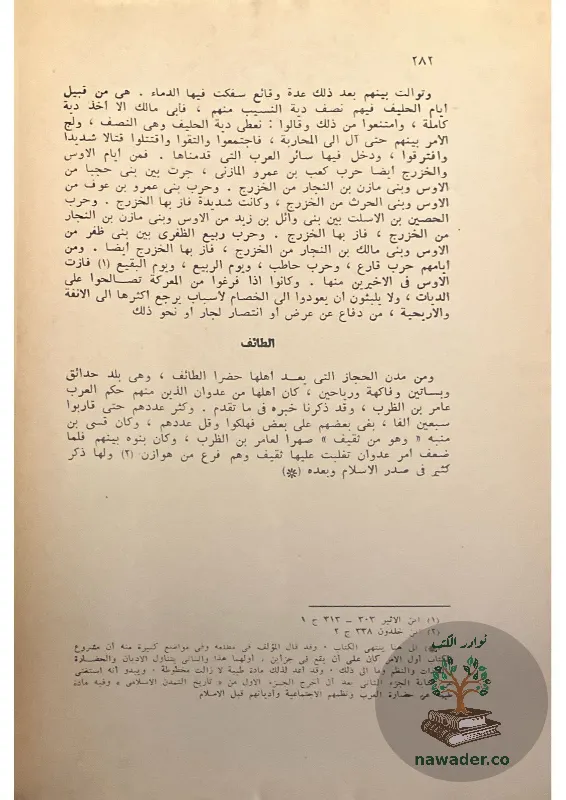 ٢٨٢
وتوالت بينهم بعد ذلك عدة وقائع سفكت فيها الدماء . هى من قبيل
أيام الحليف فيهم نصف دية النسيب منهم ، فأبى مالك الا أخذ دية
كاملة ، وامتنعوا من ذلك وقالوا : نعطى دية الحليف وهى النصف ، ولج
الأمر بينهم حتى آل الى المحاربة ، فاجتمعوا والتقوا واقتتلوا قتالا شديدا
وافترقوا ، ودخل فيها سائر العرب التى قدمناها . فمن أيام الأوس
والخزرج أيضا حرب كعب بن عمرو المازنى ، جرت بين بنى حجبا من
الأوس وبنى مازن بن النجار من الخزرج . وحرب بنى عمرو بن عوف من
الأوس وبنى الحرث من الخزرج ، وكانت شديدة فاز بها الخزرج . وحرب
الحصين بن الاسلت بين بنى وائل بن زيد من الأوس وبنى مازن بن النجار
من الخزرج ، فاز بها الخزرج . وحرب ربيع الظفرى بين بنى ظفر من
الأوس وبنى مالك بن النجار من الخزرج ، فاز بها الخزرج أيضا . ومن
أيامهم حرب قارع ، وحرب حاطب ، ويوم الربيع ، ويوم البقيع (١) فازت
الأوس فى الاخيرين منها . وكانوا اذا فرغوا من المعركة تصالحوا على
الديات ، ولا يلبثون أن يعودوا الى الخصام لأسباب يرجع أكثرها الى الانفة
والاريحية ، من دفاع عن عرض أو انتصار لجار أو نحو ذلك
الطائف
ومن مدن الحجاز التى يعد أهلها حضرا الطائف ، وهى بلد حدائق
وبساتين وفاكهة ورياحين ، كان أهلها من عدوان الذين منهم حكم العرب
عامر بن الظرب ، وقد ذكرنا خبره فى ما تقدم . وكثر عددهم حتى قاربوا
سبعين ألفا ، بغى بعضهم على بعض فهلكوا وقل عددهم ، وكان قسى بن
منبه « وهو من ثقيف » صهرا لعامر بن الظرب ، وكان بنوه بينهم فلما
ضعف أمر عدوان تغلبت عليها ثقيف وهم فرع من هوازن (٢) ولها ذكر
كثير فى صدر الاسلام وبعده (*)
(١) ابن الاثير ٣٠٣ – ٣١٣ ج ١
(٢) ابن خلدون ٣٣٨ ج ٢
الى هنا ينتهى الكتاب . وقد قال المؤلف فى مقدمته وفى مواضع كثيرة منه أن مشروع
الكتاب أول الأمر كان على أن يقع فى جزأين . أولهما هذا والثانى يتناول الاديان والحضارة
والنظم وما الى ذلك . وقد أعد لذلك مادة طيبة لا زالت مخطوطة . ويبدو أنه استغنى
الجزء الثانى بعد أن أخرج الجزء الاول من « تاريخ التمدن الاسلامى » وفيه مادة
من حضارة العرب ونظمهم الاجتماعية وأديانهم قبل الاسلام
نوادر الكتب
nawader.co